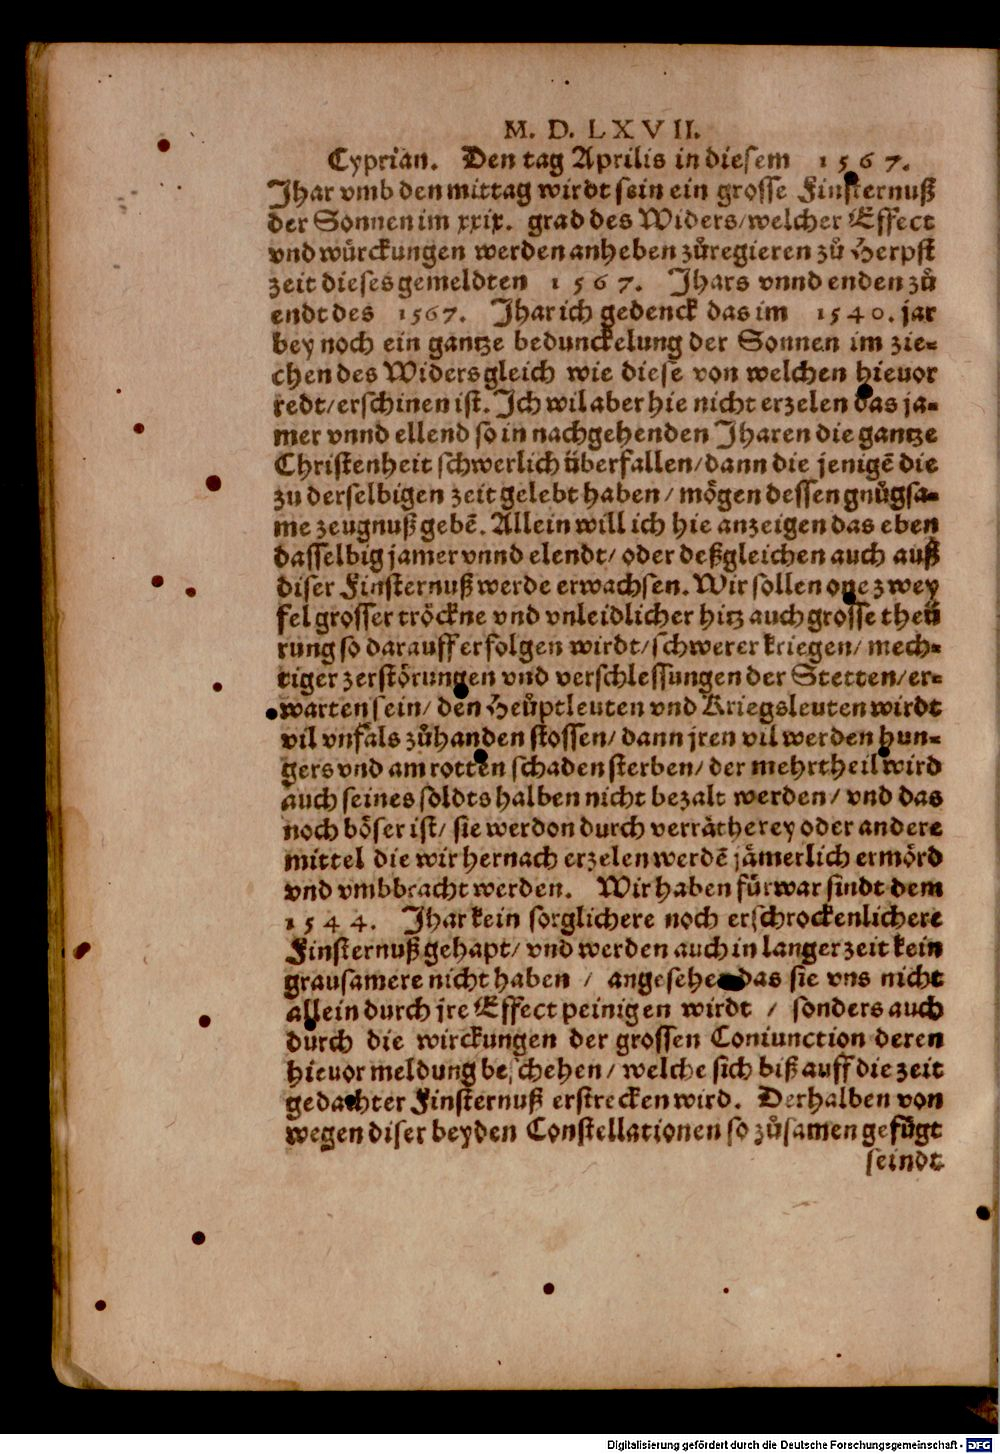 M. D. LXVII.
Cyprian. Den tag Aprilis in diesem 1567.
Jhar vmb den mittag wirdt sein ein grosse Finsternuß
der Sonnen im xxix. grad des Widers/welcher Effect
vnd würckungen werden anheben zůregieren zů Herpst
zeit dieses gemeldten 1567. Jhars vnnd enden zů
endt des 1567. Jhar ich gedenck das im 1540. jar
bey noch ein gantze bedunckelung der Sonnen im zie-
chen des Widers gleich wie diese von welchen hieuor
redt/erschinen ist. Ich wil aber hie nicht erzelen das ja-
mer vnnd ellend so in nachgehenden Jharen die gantze
Christenheit schwerlich überfallen/dann die jenigē die
zu derselbigen zeit gelebt haben/mögen dessen gnůgsa-
me zeugnuß gebē. Allein will ich hie anzeigen das eben
dasselbig jamer vnnd elendt/oder deßgleichen auch auß
diser Finsternuß werde erwachsen. Wir sollen one zwey
fel grosser tröckne vnd vnleidlicher hitz auch grosse theü
rung so darauff erfolgen wirdt/schwerer kriegen/mech-
tiger zerstörungen vnd verschlessungen der Stetten/er-
warten sein/den Heůptleuten vnd Kriegsleuten wirdt
vil vnfals zůhanden stossen/dann jren vil werden hun-
gers vnd am rotten schaden sterben/der mehrtheil wird
auch seines soldts halben nicht bezalt werden/vnd das
noch böser ist/sie werdon durch verrätherey oder andere
mittel die wir hernach erzelen werdē jämerlich ermörd
vnd vmbbracht werden. Wir haben fürwar sindt dem
1544. Jhar kein sorglichere noch erschrockenlichere
Finsternuß gehapt/vnd werden auch in langer zeit kein
grausamere nicht haben / angesehen das sie vns nicht
allein durch jre Effect peinigen wirdt / sonders auch
durch die wirckungen der grossen Coniunction deren
hieuor meldung beschehen/welche sich biß auff die zeit
gedachter Finsternuß erstrecken wird. Derhalben von
wegen diser beyden Constellationen so zůsamen gefůgt
seindt
Digitalisierung gefördert durch die Deutsche Forschungsgemeinschaft - DFG